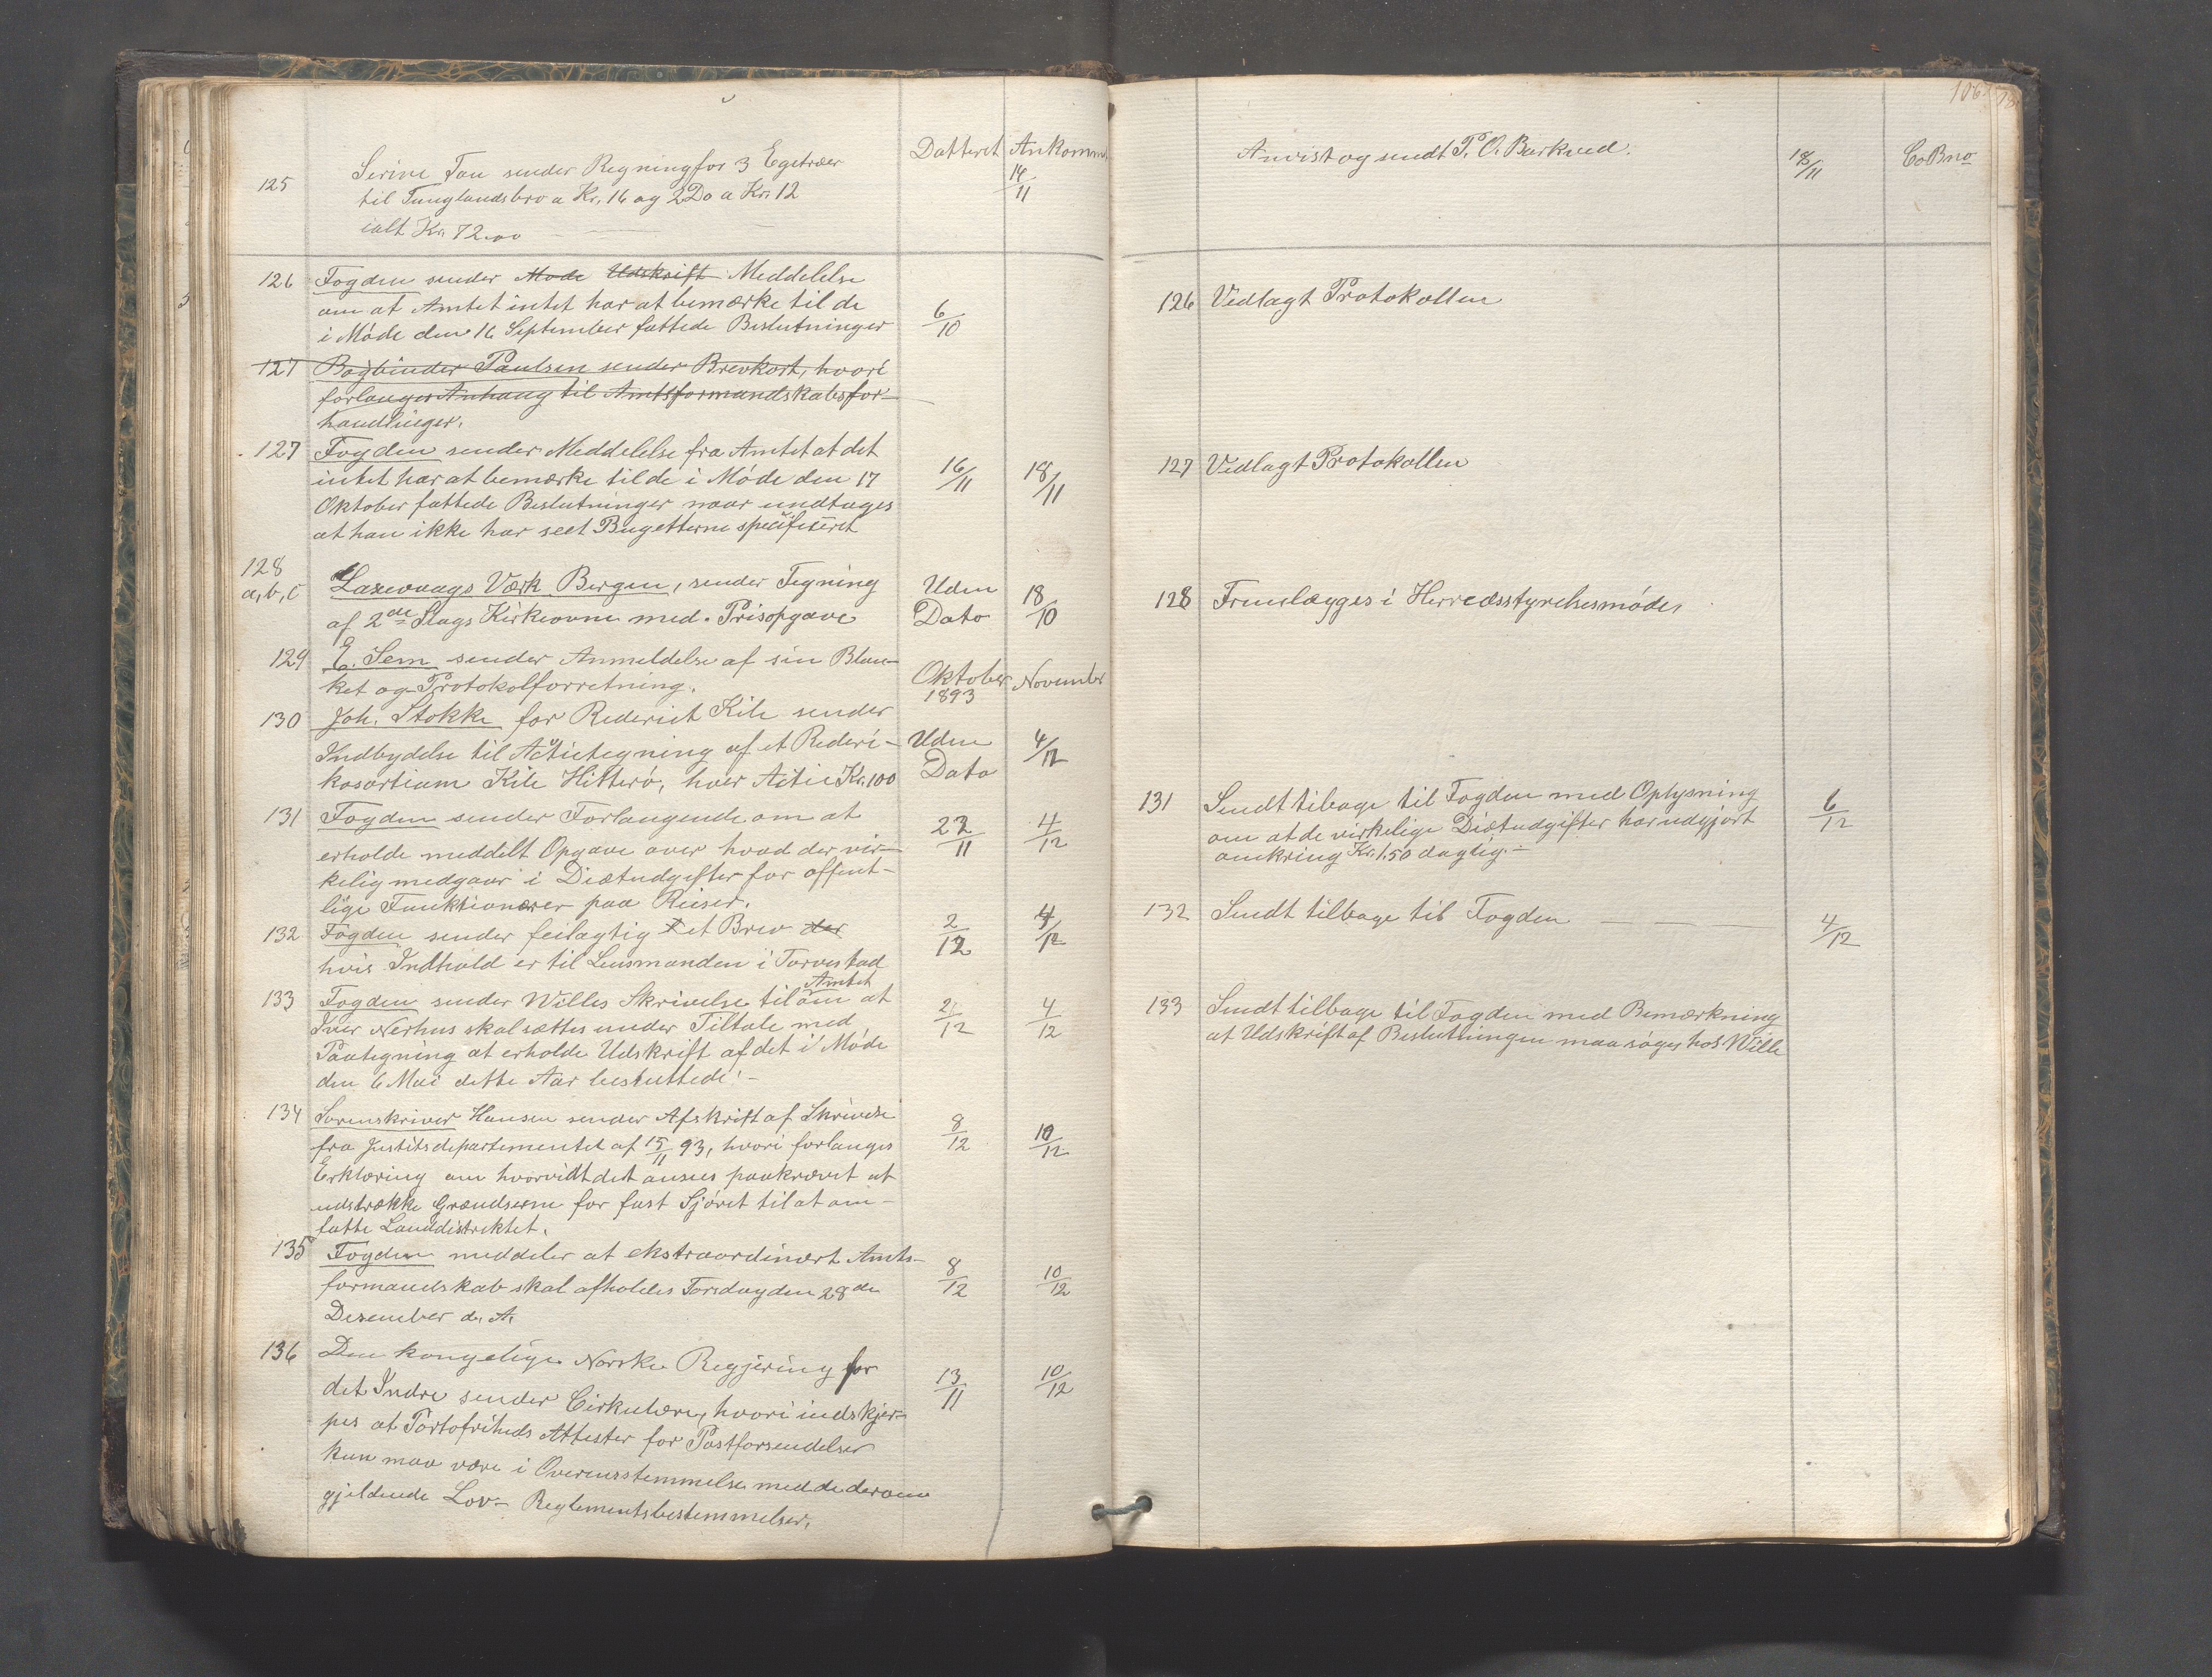 Datteret Ankommet
125 Serine Tou sender Regning for 3 Egetræer 14/11
til Tunglandsbro a Kr. 16 og 2 Do a Kr. 12
ialt Kr. 72.00
126 Fogden sender Mode Udskrift Meddelelse
om at Amtet intet har at bemærke til de
i Møde den 16 September fattede Beslutninger 6/10
127 Bogbinder Paulsen sender Brevkort, hvori
forlanges Anhang til Amtsformandskabsfor-
handlinger.
127 Fogden sender Meddelelse fra Amtet at det
intet har at bemærke til de i Møde den 17 16/11 18/11
Oktober fattede Beslutninger naar undtages
at han ikke har seet Bugetterne specifiseret
128
a, b, c Laxevaags Værk Bergen, sender Tegning Uden 18/10
af 2de Slags Kirkeovne med Prisopgave Dato
129 E. Sem sender Anmeldelse af sin Blan-
ket og Protokolforretning. Oktober 1893 November
130 Joh. Stokke for Rederiet Kile sender
Indbydelse til Actietegning af et Rederi- Uden 4/12
kosortium Kile Hitterø, hver Actie Kr. 100 Dato
131 Fogden sender Forlangende om at
erholde meddelt Opgave over hvad der vir- 22/11 4/12
kelig medgaar i Diætudgifter for offent-
lige Funktionærer paa Reiser.
132 Fogden sender feilagtig et Brev der 2/12 4/12
hvis Indhold er til Lensmanden i Torvestad
133 Fogden sender Willes Skrivelse til Amtet om at
Iver Nerhus skal sættes under Tiltale med 2/12 4/12
Paategning at erholde Udskrift af det i Møde
den 6 Mai dette Aar besluttede.-
134 Sorenskriver Hansen sender Afskrift af Skrivelse
fra Justitsdepartementet af 15/11 93, hvori forlanges 8/12 10/12
Erklæring om hvorvidt det ansees paakrævet at
udstrække Grændserne for fast Sjøret til at om-
fatte Landdistriktet.
135 Fogden meddeler at ekstraordinært Amts-
formandskab skal afholdes Torsdag den 28de 8/12 10/12
Desember d. A.
136 Den kongelige Norske Regjering for
det Indre sender Cirkulære, hvori indskjær- 13/11 10/12
pes at Portofriheds Attester for Postforsendelser
kun maa være i Overensstemmelse med de derom
gjeldende Lov- Reglementsbestemmelser.
106
Anvist og sendt P. O. Barkved. 18/11 CoBno
126 Vedlagt Protokollen
127 Vedlagt Protokollen
128 Fremlægges i Herredsstyrelsesmøde
131 Sendt tilbage til Fogden med Oplysning 6/12
om at de virkelige Diætudgifter har udgjort
omkring Kr. 1.50 daglig.-
132 Sendt tilbage til Fogden 4/12
133 Sendt tilbage til Fogden med Bemærkning
at Udskrift af Beslutningen maa søges hos Wille